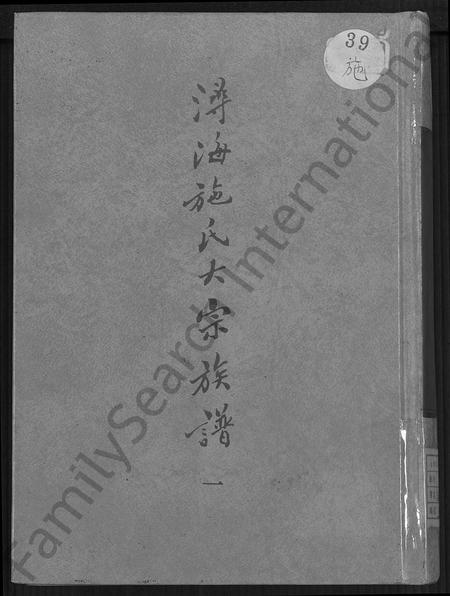 39
施
潯海施氏大宗族譜
一
FamilySearch International